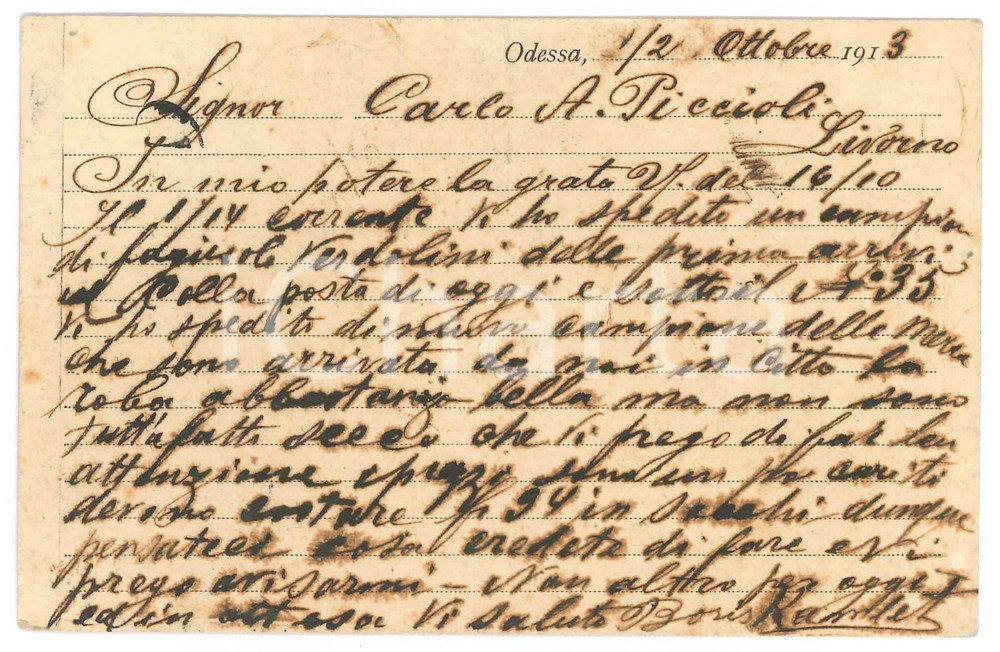 Odessa, 1/2 Ottobre 1913
Signor Carlo A. Piccioli
Livorno
In mio potere la grata V. del 16/10
Il 1/14 corrente Vi ho spedito un campion
di fagiuoli Verdolini delle prima arrivi
Colla posta di oggi e sotto il No 35
Vi ho spedito di nuovo campione della merce
che sono arrivata da noi in citta la
roba abbastanza bella ma non sono
tutt'afatto secco che Vi prego di far ben
attenzione sono un po cariti
devono costare 94 in sacchi dunque
pensateci cosa credete di fare e Vi
prego avisarmi - Non altro per oggi
ed in attesa Vi saluto Boris